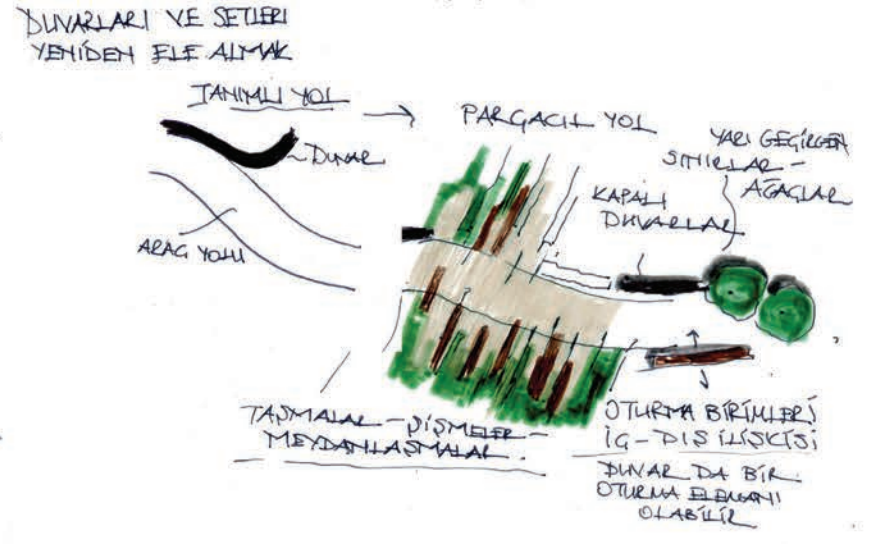 DUVARLARI VE SETLERI
YENİDEN ELE ALMAK
TANIMLI YOL
PARÇACIL YOL
DUVAR
YARI GEÇİRGEN
SINIRLAR -
AĞAÇLAR
KAPALI
DUVARLAR
ARAÇ YOLU
TAŞMALAR - ŞİŞMELER -
MEYDANLAŞMALAR.
OTURMA BİRİMLERİ
İÇ - DIŞ İLİŞKİSİ
DUVAR DA BİR
OTURMA ELEMANI
OLABİLİR